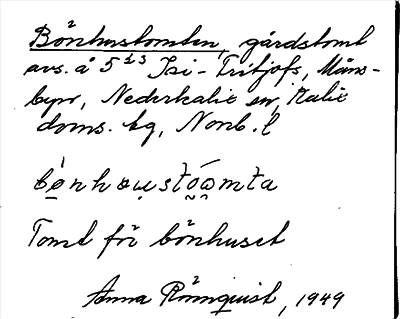 Bönhustomten, gårdstomt
avs. å 5 Isi-Fritjofs, Måns-
byn, Nederkalix sn, Kalix
doms. tg, Norrb. l
Tomt för bönhuset
Anna Rönnquist, 1949